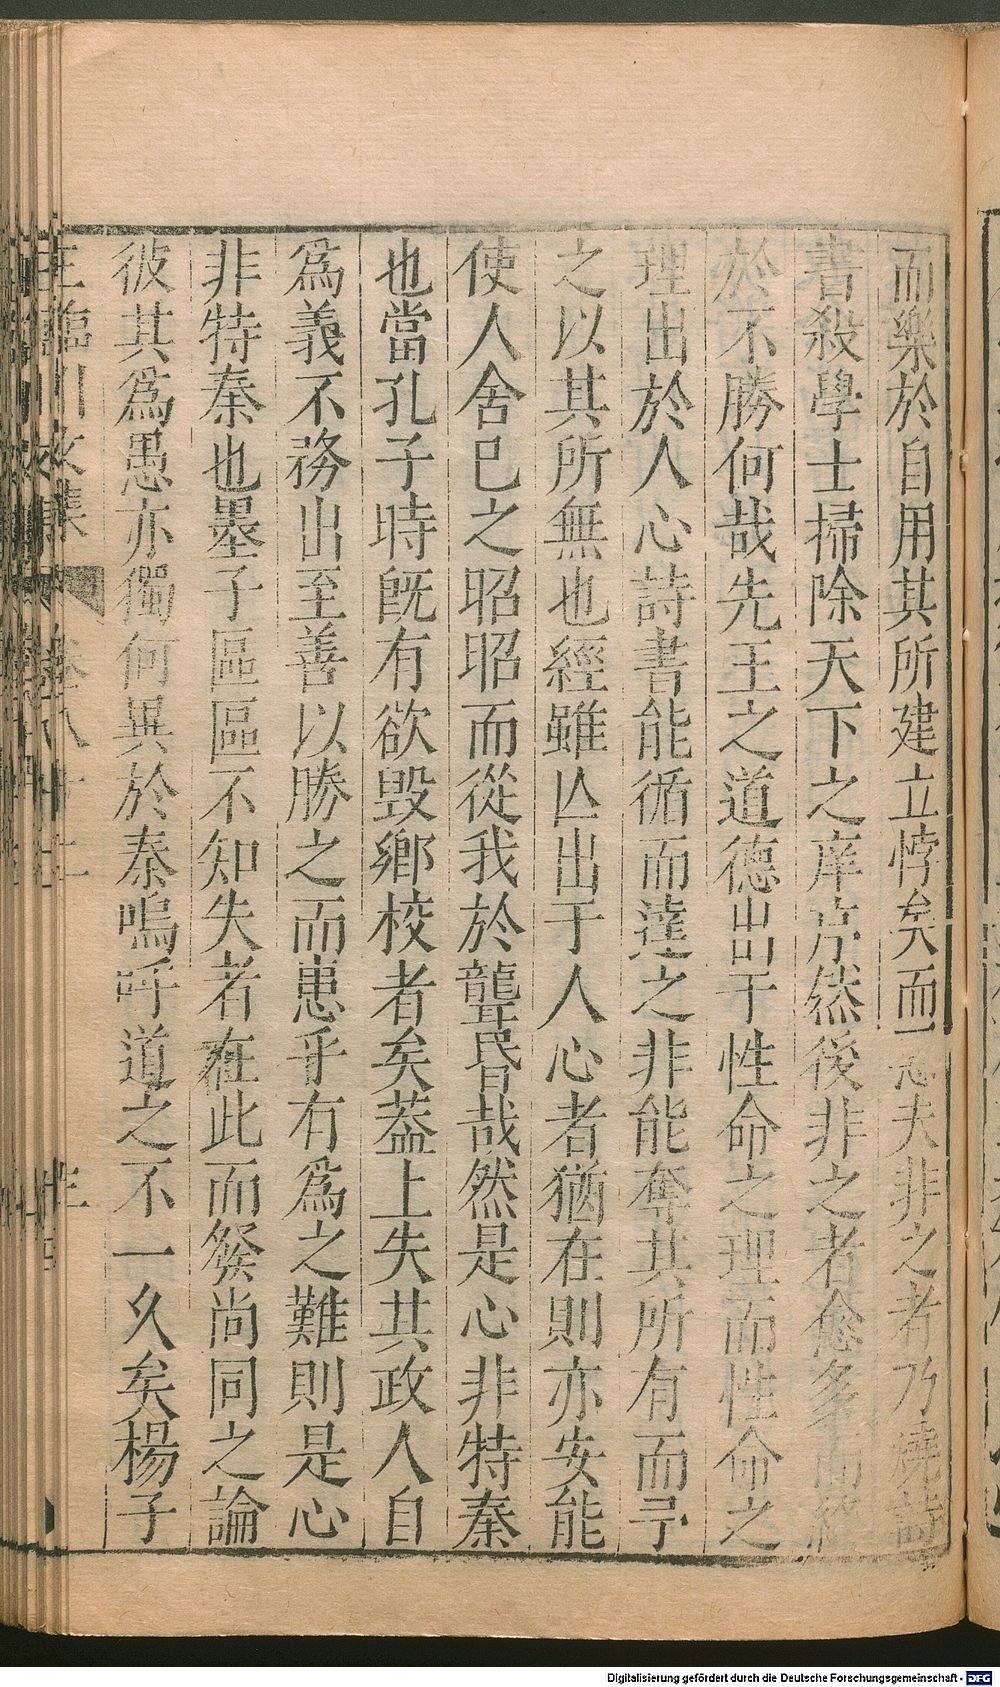 而樂於自用其所建立悖矣而惡夫非之者乃燒詩
書殺學士掃除天下之庠序然後非之者愈多而終
於不勝何哉先王之道德出于性命之理而性命之
理出於人心詩書能循而達之非能奪其所有而予
之以其所無也經雖亾出于人心者猶在則亦安能
使人舍已之昭昭而從我於聾昏哉然是心非特秦
也當孔子時既有欲毁鄉校者矣葢上失其政人自
爲義不務出至善以勝之而患乎有爲之難則是心
非特秦也墨子區區不知失者在此而發尚同之論
彼其爲愚亦獨何異於秦嗚呼道之不一久矣楊子
王臨川文集 卷八十二
Digitalisierung gefördert durch die Deutsche Forschungsgemeinschaft - DFG